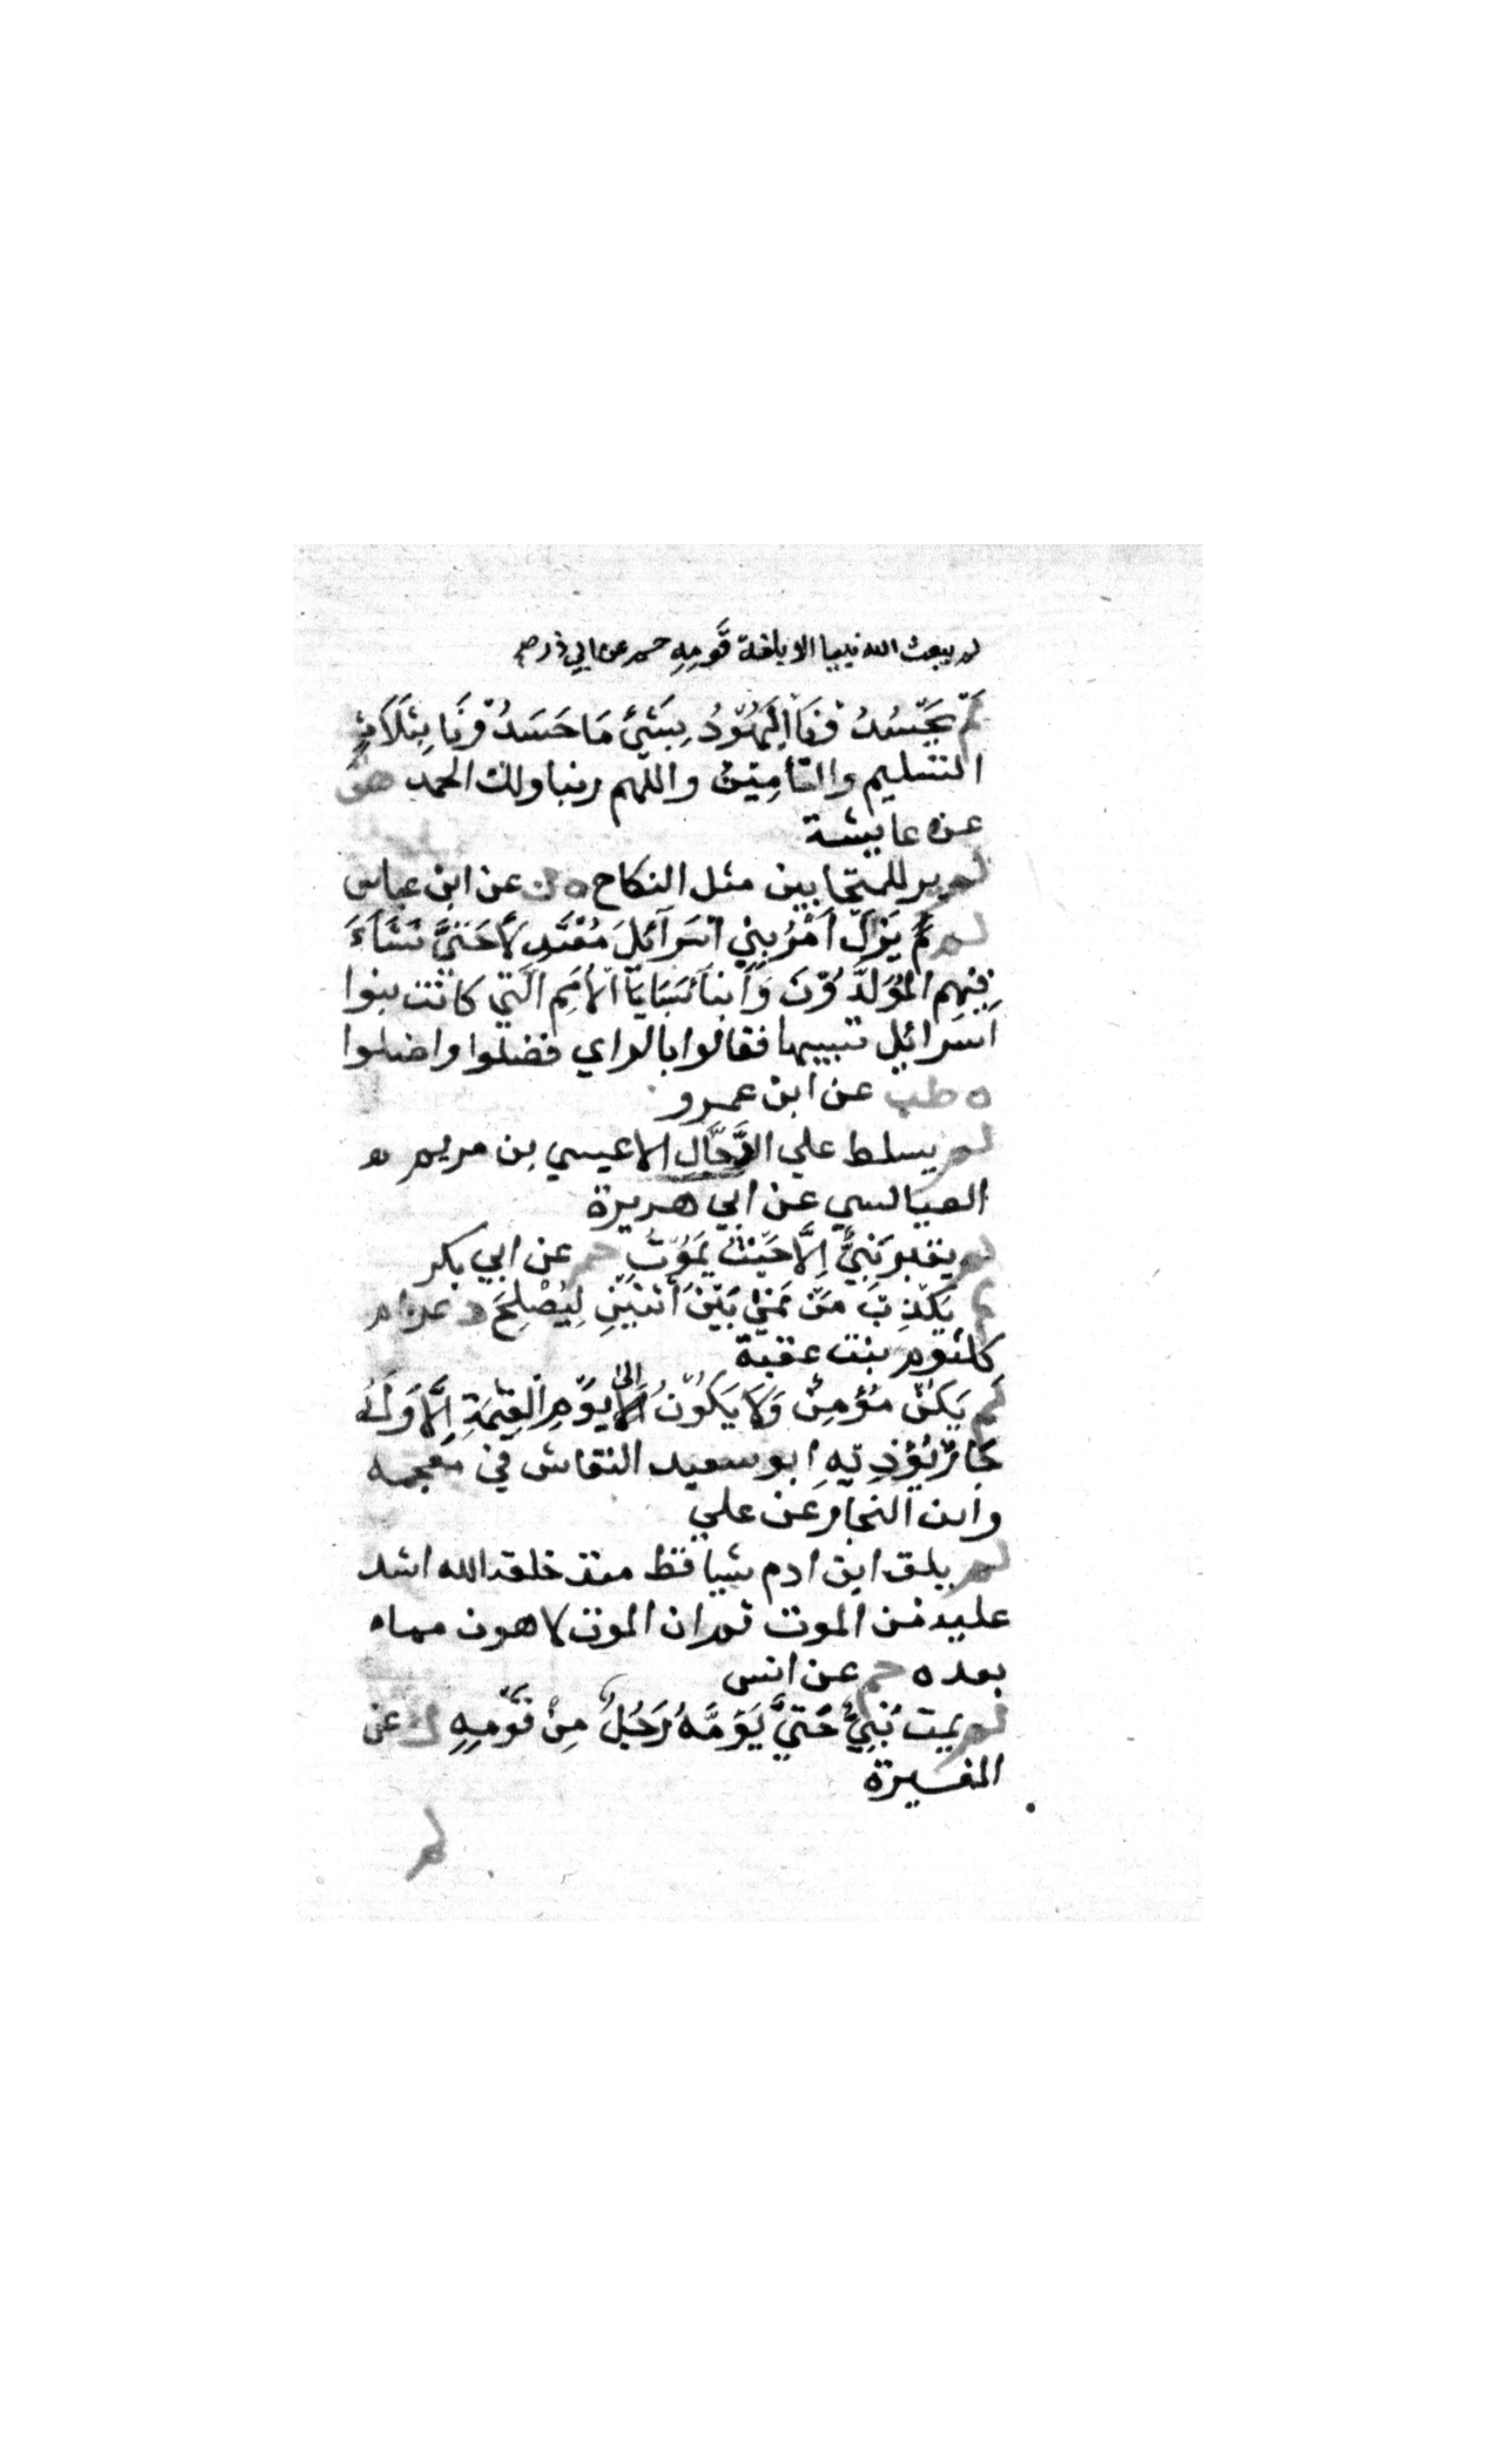 لم يبعث الله نبيا الا بلغة قَومِهِ حم عن ابي ذر
لَمْ يَحْسُدُوْنَا الْيَهُوْدُ بِشَئٍ مَا حَسَدُوْنَا بِثَلَاثٍ
التسليم والتَّامِيْنُ واللهم ربنا ولك الحمد هق
عن عايشة
لم ير للمتحابين مثل النكاح ه ك عن ابن عباس
لم يَزَلْ اَمْرُ بَنِي اسْرَآئِلَ مُعْتَدِلًا حَتَّىَ نَشَاءَ
فِيْهِمِ المُوَلَّدُوْنَ وَاَبْنَاءُ سَبَايَا الْاُمَمِ الَّتِي كانت بنوا
اسرائل تسبيها فقالوا بالراي فضلوا واضلوا
ه طب عن ابن عمرو
لم يسلط علي الدَّجَّالِ الا عيسي بن مريم
الطيالسي عن ابي هريرة
لم يقبر نَبِيٌّ اِلَّا حَيْثُ يَمُوْتُ حم عن ابي بكر
لم يَكْذِبَ مَنْ نَمَى بَيْنَ اثْنَيْنِ لِيُصْلِحَ د عن ام
كلثوم بنت عقبة
لَمْ يَكُنْ مُؤْمِنٌ وَلَا يَكُوْنُ اِلى يَوْمِ الْقِيمَةِ اِلَّا وَلَهُ
جَارٌ يُؤْذِيْهِ ابو سعيد النقاش في معجمه
وابن النجار عن علي
لم يلق ابن ادم شيا قط منذ خلقه الله اشد
عليه من الموت ثم ان الموت لاهون مما
بعده حم عن انس
لم يمت نَبِيٌّ حَتَّيَ يَؤُمَّهُ رَجُلٌ مِنْ قَوْمِهِ ك عن
المغيرة
لم